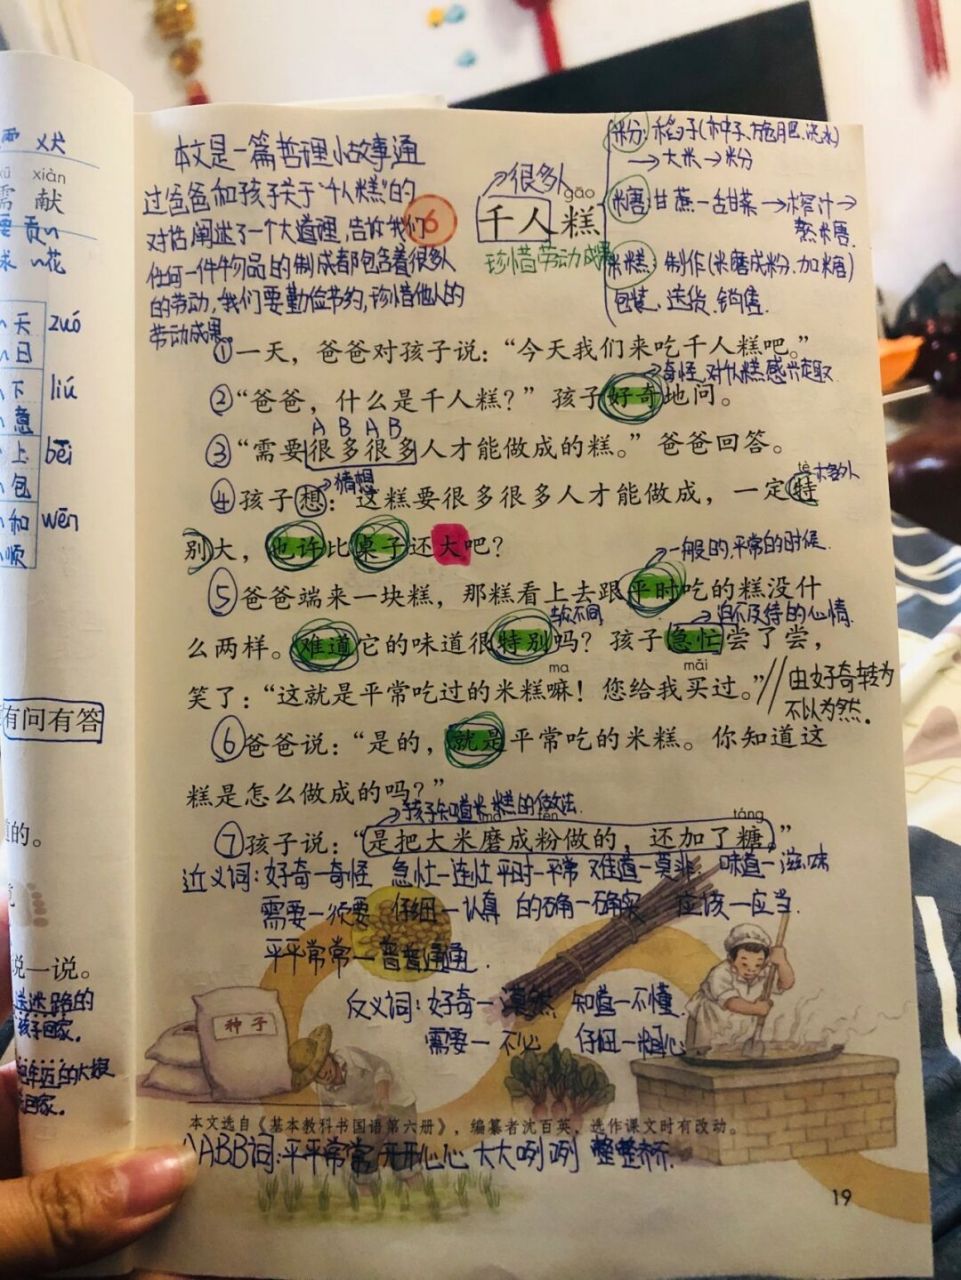 献
xiàn
献
贡
花
天
zuó
日
下
liú
意
上
bēi
包
和
wēn
顺
有问有答
道的。
说一说。
迷路的
孩子回家。
年迈的大娘
回家。
本文是一篇哲理小故事通
过爸爸和孩子关于“千人糕”的
对话阐述了一个大道理,告诉我们
任何一件物品的制成都包含着很多人
的劳动,我们要勤俭节约,珍惜他人的
劳动成果。
6
很多人
gāo
千人糕
珍惜劳动成果
粉:稻子(种子、施肥、浇水)
→大米→粉
糖:甘蔗—甜菜→榨汁→
熬糖.
米糕:制作(米磨成粉.加糖)
包装.送货.销售.
①一天，爸爸对孩子说：“今天我们来吃千人糕吧。”
奇怪.对千人糕感兴趣
②“爸爸，什么是千人糕？”孩子好奇地问。
A B A B
③“需要很多很多人才能做成的糕。”爸爸回答。
猜想
④孩子想：这糕要很多很多人才能做成，一定特
别大，也许比桌子还大吧？
一般的,平常的时候.
⑤爸爸端来一块糕，那糕看上去跟平时吃的糕没什
不同
迫不及待的心情.
么两样。难道它的味道很特别吗？孩子急忙尝了尝，
ma
mǎi
笑了：“这就是平常吃过的米糕嘛！您给我买过。”
由好奇转为
不以为然.
⑥爸爸说：“是的，就是平常吃的米糕。你知道这
糕是怎么做成的吗？”
孩子知道米糕的做法.
fěn
táng
⑦孩子说：“是把大米磨成粉做的，还加了糖。”
近义词:好奇—奇怪 急忙—连忙 平时—平常 难道—莫非. 味道—滋味
需要—须要 仔细—认真 的确—确实 应该—应当.
平平常常—普普通通.
反义词:好奇—漠然 知道—不懂.
需要—不必 仔细—粗心
种子
本文选自《基本教科书国语第六册》，编纂者沈百英，选作课文时有改动。
AABB词:平平常常 开开心心 大大咧咧 整整齐齐.
19